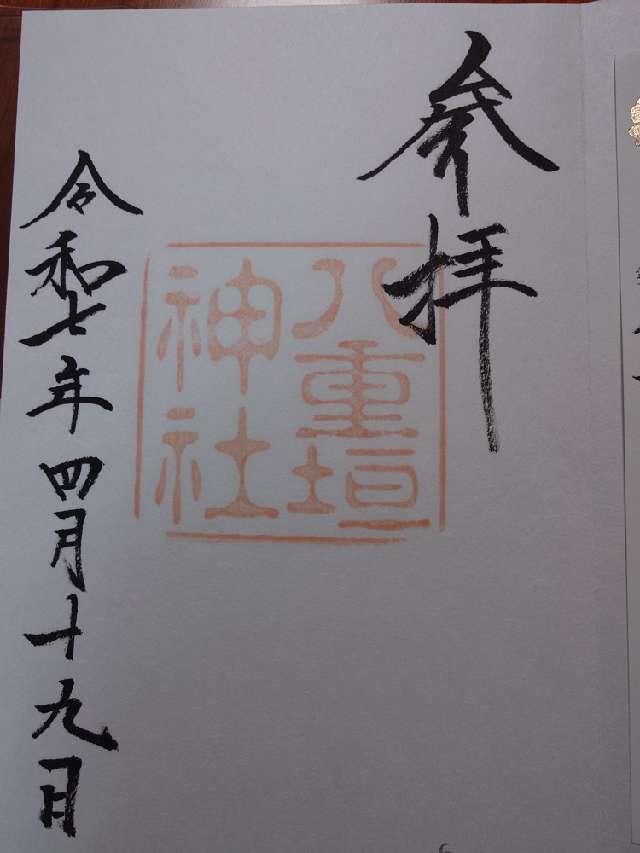 参拝
八重垣
神社
令和七年四月十九日